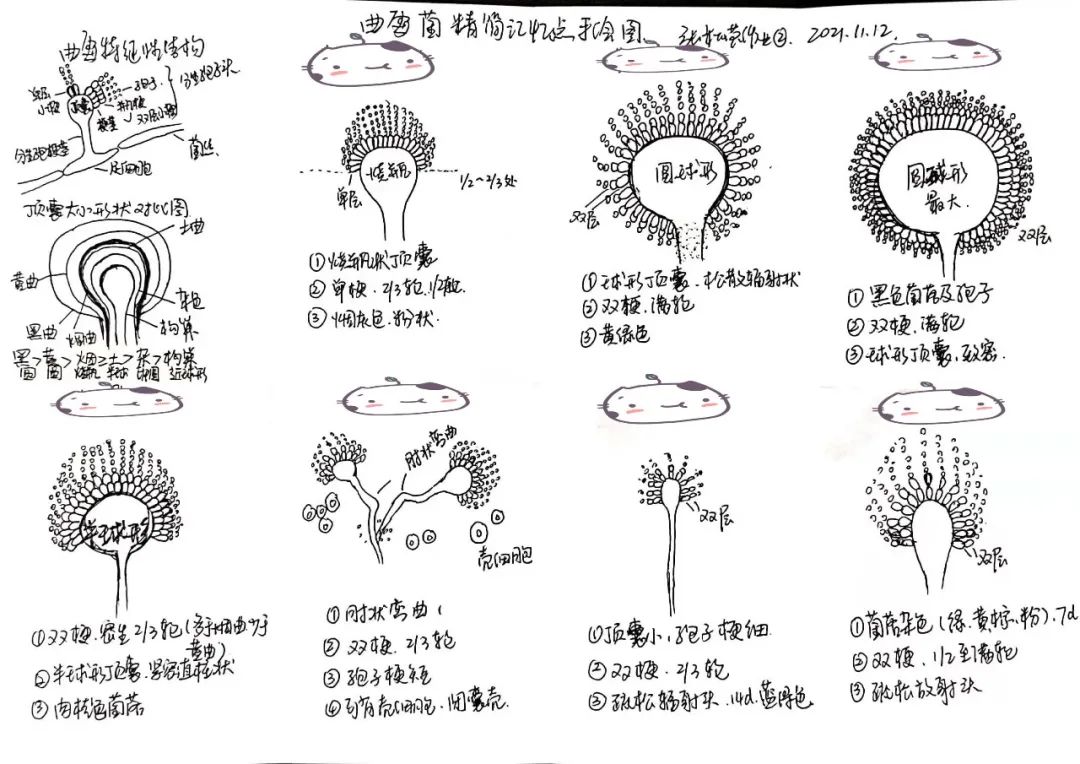 曲霉菌精简记忆点手绘图
2021.11.12.
曲霉特征性结构
单层
小梗
顶囊
孢子
瓶梗
梗基
双层小梗
分生孢子头
分生孢子梗茎
足细胞
菌丝
顶囊大小形状对比图
土曲
黄曲
杂色
构巢
黑曲
烟曲
黑>黄>烟≥土>杂>构巢
圆 圆 烧瓶 半球 椭圆 近球形
烧瓶
单层
1/2~2/3处
①烧瓶状顶囊
②单梗.2/3轮.1/2轮
③烟灰色.粉状.
圆球形
双层
①球形顶囊.松散辐射状
②双梗.满轮
③黄绿色
圆球形
最大.
双层
①黑色菌落及孢子
②双梗.满轮
③球形顶囊.致密.
半球形
①双梗.密生2/3轮(多于烟曲少于
黄曲)
②半球形顶囊.紧密直柱状
③肉桂色菌落
肘状弯曲
壳细胞
①肘状弯曲
②双梗.2/3轮
③孢子梗短
④可有壳细胞.闭囊壳.
双层
①顶囊小,孢子梗细
②双梗.2/3轮
③疏松辐射头.14d.蓝绿色
双层
①菌落杂色(绿.黄棕.粉).7d
②双梗.1/2至满轮
③疏松放射头